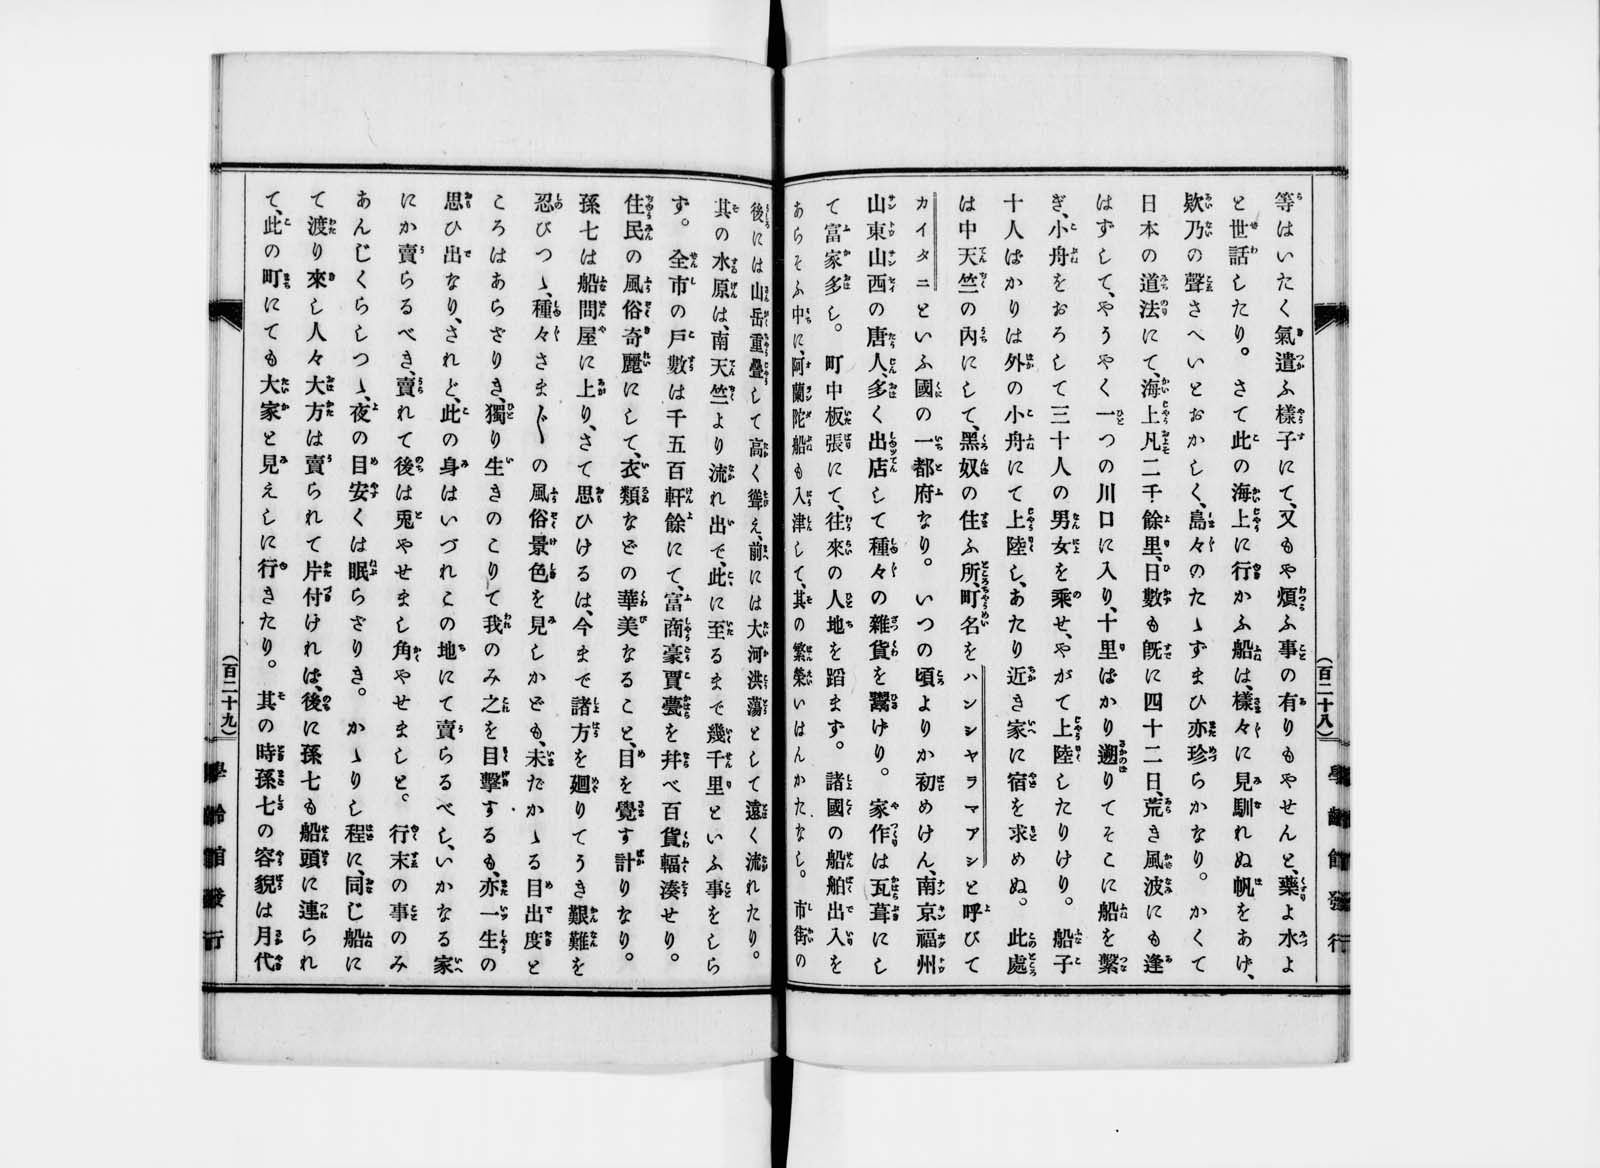 等はいたく氣遣ふ樣子にて、又もや煩ふ事の有りもやせんと、藥よ水よ
と世話したり。さて此の海上に行かふ船は、樣々に見馴れぬ帆をあげ、
欵乃の聲さへいとおかしく、島々のたゝずまひ亦珍らかなり。かくて
日本の道法にて、海上凡二千餘里、日數も既に四十二日、荒き風波にも逢
はずして、やうやく一つの川口に入り、十里ばかり遡りてそこに船を繫
ぎ、小舟をおろして三十人の男女を乘せ、やがて上陸したりけり。船子
十人ばかりは外の小舟にて上陸し、あたり近き家に宿を求めぬ。此處
は中天竺の內にして、黑奴の住ふ所、町名をハンシヤラマアシと呼びて
カイタニといふ國の一都府なり。いつの頃よりか初めけん、南京福州
山東山西の唐人、多く出店して種々の雜貨を鬻げり。家作は瓦葺にし
て富家多し。町中板張にて、往來の人地を蹈まず。諸國の船舶出入を
あらそふ中に、阿蘭陀船も入津して、其の繁榮いはんかたなし。市街の
(百二十八)
學齡館發行
後には山岳重疊して高く聳え、前には大河洪蕩として遠く流れたり。
其の水原は、南天竺より流れ出で、此に至るまで幾千里といふ事をしら
ず。全市の戶數は千五百軒餘にて、富商豪賈甍を幷べ百貨輻湊せり。
住民の風俗奇麗にして、衣類などの華美なること、目を覺す計りなり。
孫七は船問屋に上り、さて思ひけるは、今まで諸方を廻りてうき艱難を
忍びつゝ、種々さま〲の風俗景色を見しかども、未だかゝる目出度と
ころはあらざりき、獨り生きのこりて我のみ之を目擊するも、亦一生の
思ひ出なり、されど、此の身はいづれこの地にて賣らるべし、いかなる家
にか賣らるべき、賣れて後は兎やせまし角やせましと。行末の事のみ
あんじくらしつゝ、夜の目安くは眠らざりき。かゝりし程に、同じ船に
て渡り來し人々大方は賣られて片付ければ、後に孫七も船頭に連られ
て、此の町にても大家と見えしに行きたり。其の時孫七の容貌は月代
(百二十九)
學齡館發行